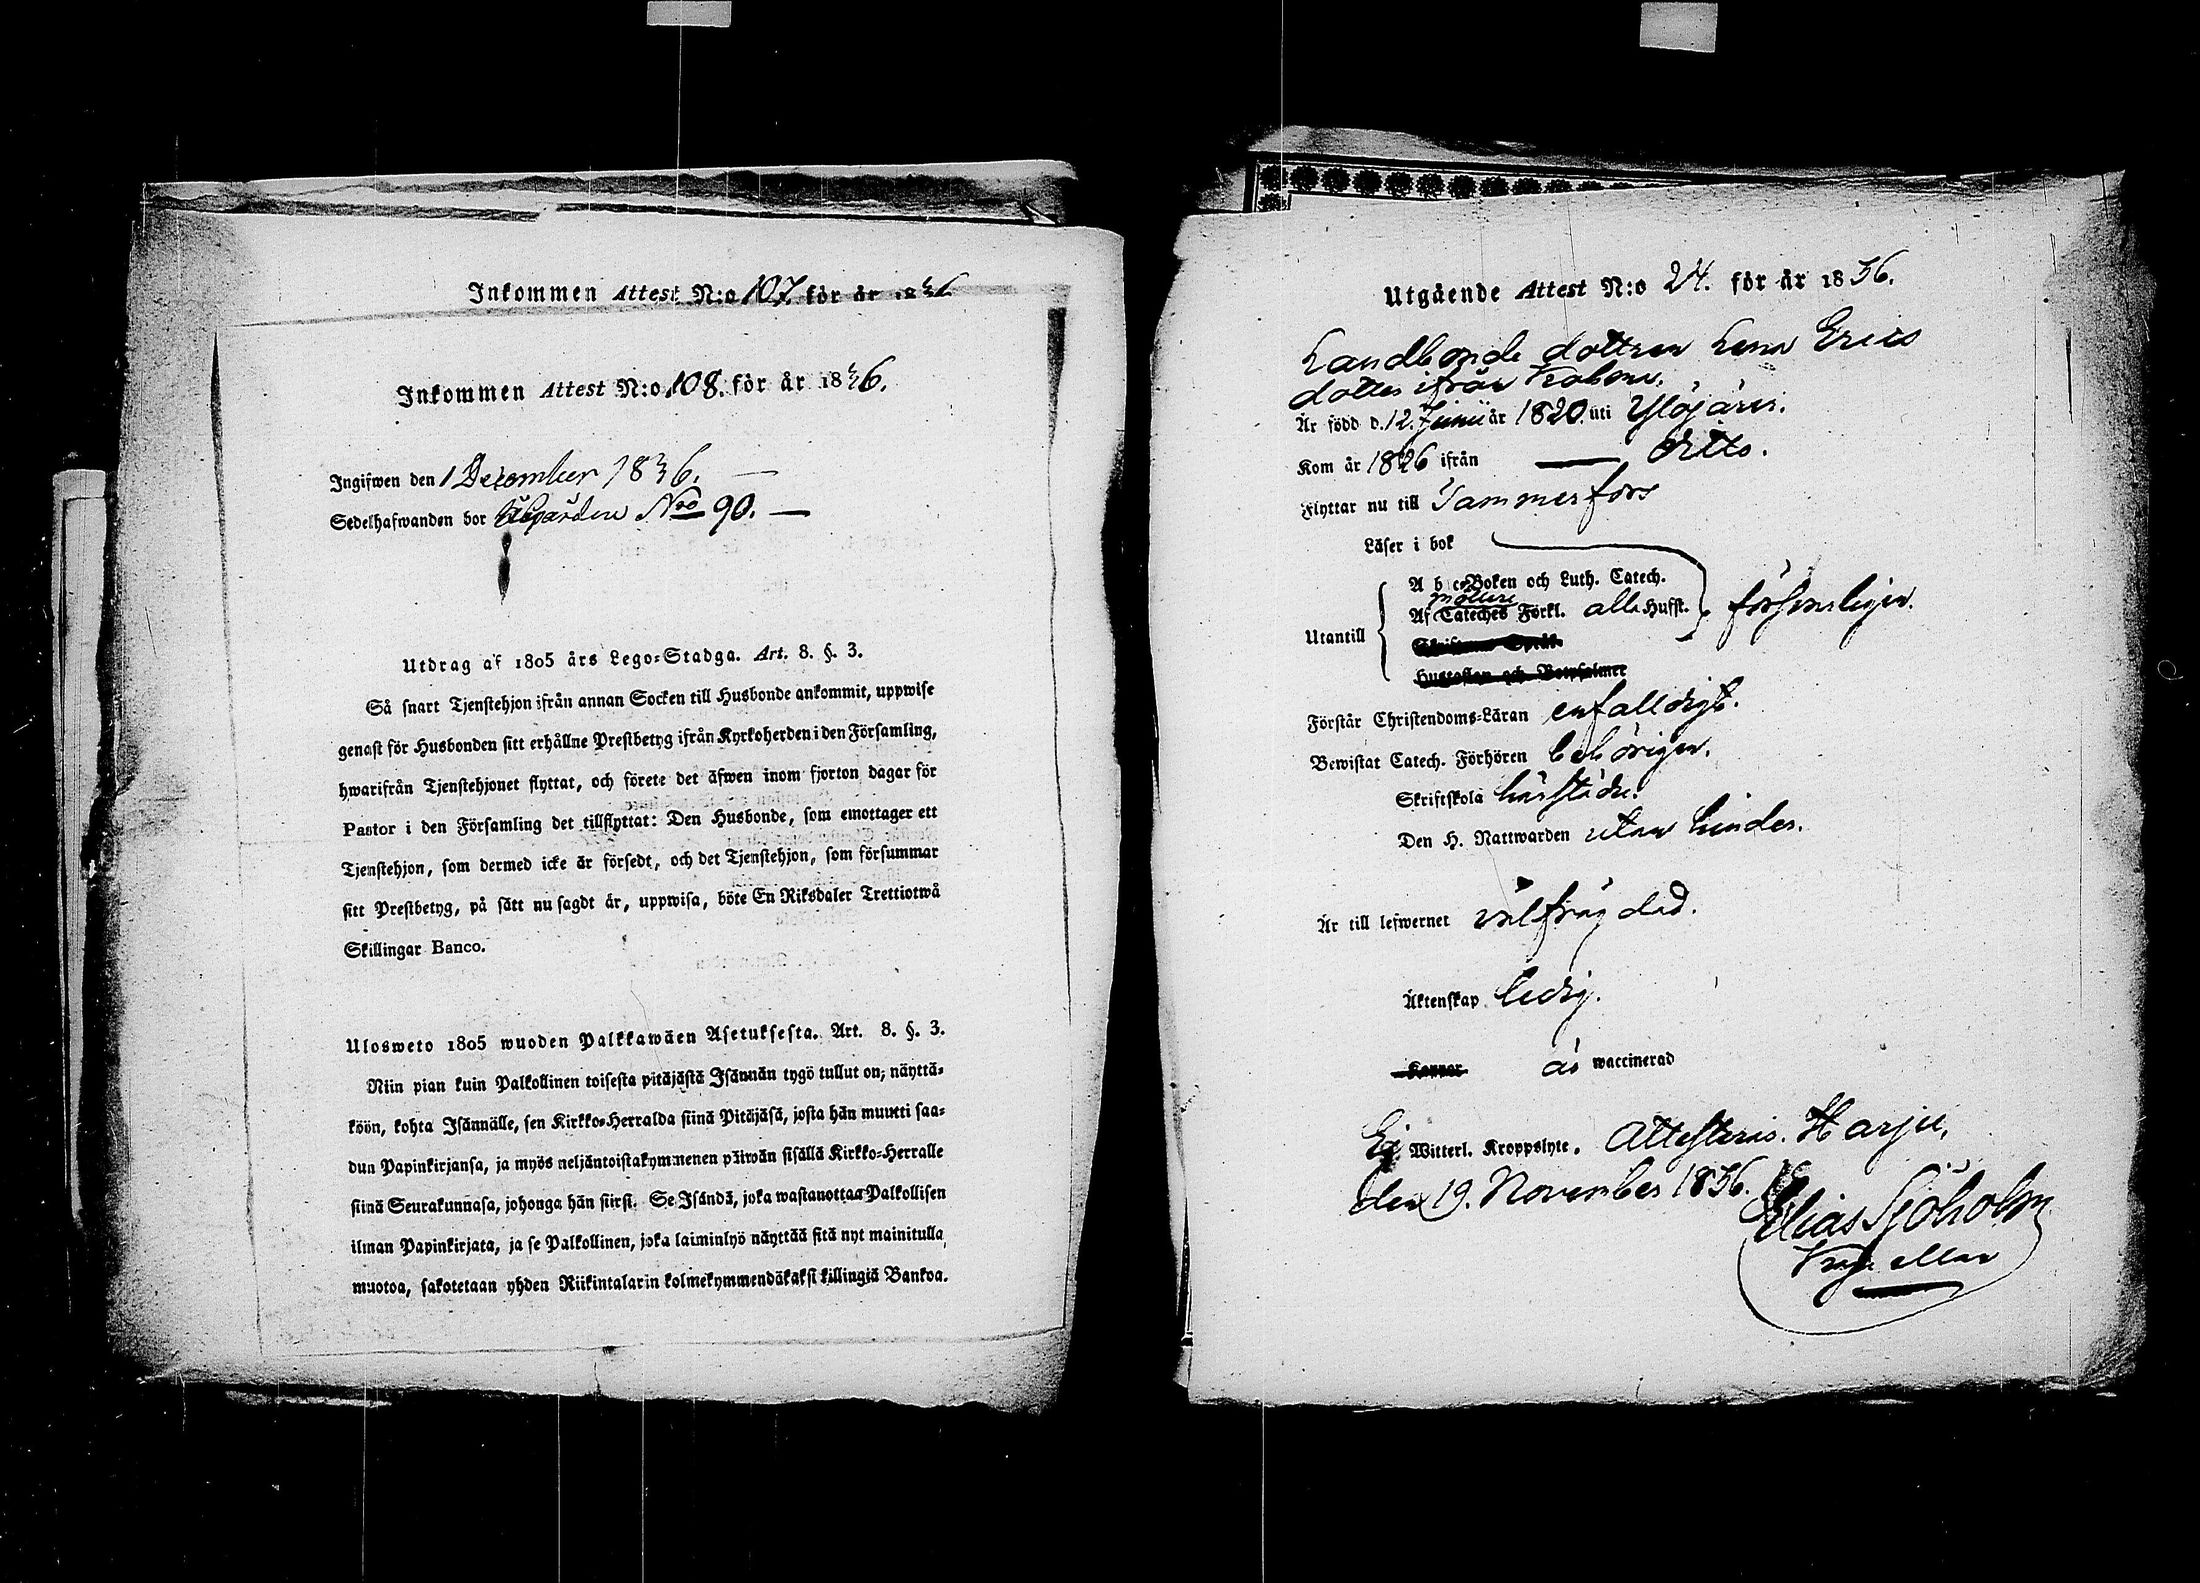 Inkommen Attest N:o 107 för år 1836
Inkommen Attest N:o 108. för år 1836.
Ingifwen den 1 December 1836. —
Sedelhafwanden bor Nro 90. —
Utdrag af 1805 års Lego=Stadga. Art. 8. §. 3.
Så snart Tjenstehjon ifrån annan Socken till Husbonde ankommit, uppwise
genast för Husbonden sitt erhållne Prestbetyg ifrån Kyrkoherden i den Församling,
hwarifrån Tjenstehjonet flyttat, och förete det äfwen inom fjorton dagar för
Pastor i den Församling det tillflyttat: Den Husbonde, som emottager ett
Tjenstehjon, som dermed icke är försedt, och det Tjenstehjon, som försummar
sitt Prestbetyg, på sätt nu sagdt är, uppwisa, böte En Riksdaler Trettiotwå
Skillingar Banco.
Ulosweto 1805 wuoden Palkkawäen Asetuksesta. Art. 8. §. 3.
Niin pian kuin Palkollinen toisesta pitäjästä Isännän tygö tullut on; näyttä=
köön, kohta Isännälle, sen Kirkko=Herralda siinä Pitäjäsä, josta hän muutti saa=
dun Papinkirjansa, ja myös neljäntoistakymmenen päiwän sisällä Kirkko=Herralle
siinä Seurakunnasa, johonga hän siirsi. Se Isändä, joka wastanottaa Palkollisen
ilman Papinkirjata, ja se Palkollinen, joka laiminlyö näyttää sitä nyt mainitulla
muotoa, sakotetaan yhden Riikintalarin kolmekymmendäkaksi killingiä Bankoa.
Utgående Attest N:o 24. för år 1836.
Landbonde dottren Lena Erics
dotter ifrån
Är född d. 12. Junii år 1820. uti Ylöjärvi.
Kom år 1826 ifrån — ditto.
Flyttar nu till Tammerfors
Läser i bok
A b c=Boken och Luth. Catech.
Af Cateches Förkl. alla Husst. försvarligen.
Utantill
Hustaflan och Botpsalmer
Förstår Christendoms=Läran enfalldigt.
Bewistat Catech. Förhören behörigen.
Skriftskola härstädes.
Den H. Nattwarden utan hinder.
Är till lefwernet välfrägdad.
Äktenskap ledig.
Koppor är waccinerad
Ej Witterl. Kroppslyte. Attesterar. Harju,
den 19. November 1836.
Elias Sjöholm
Kapellan